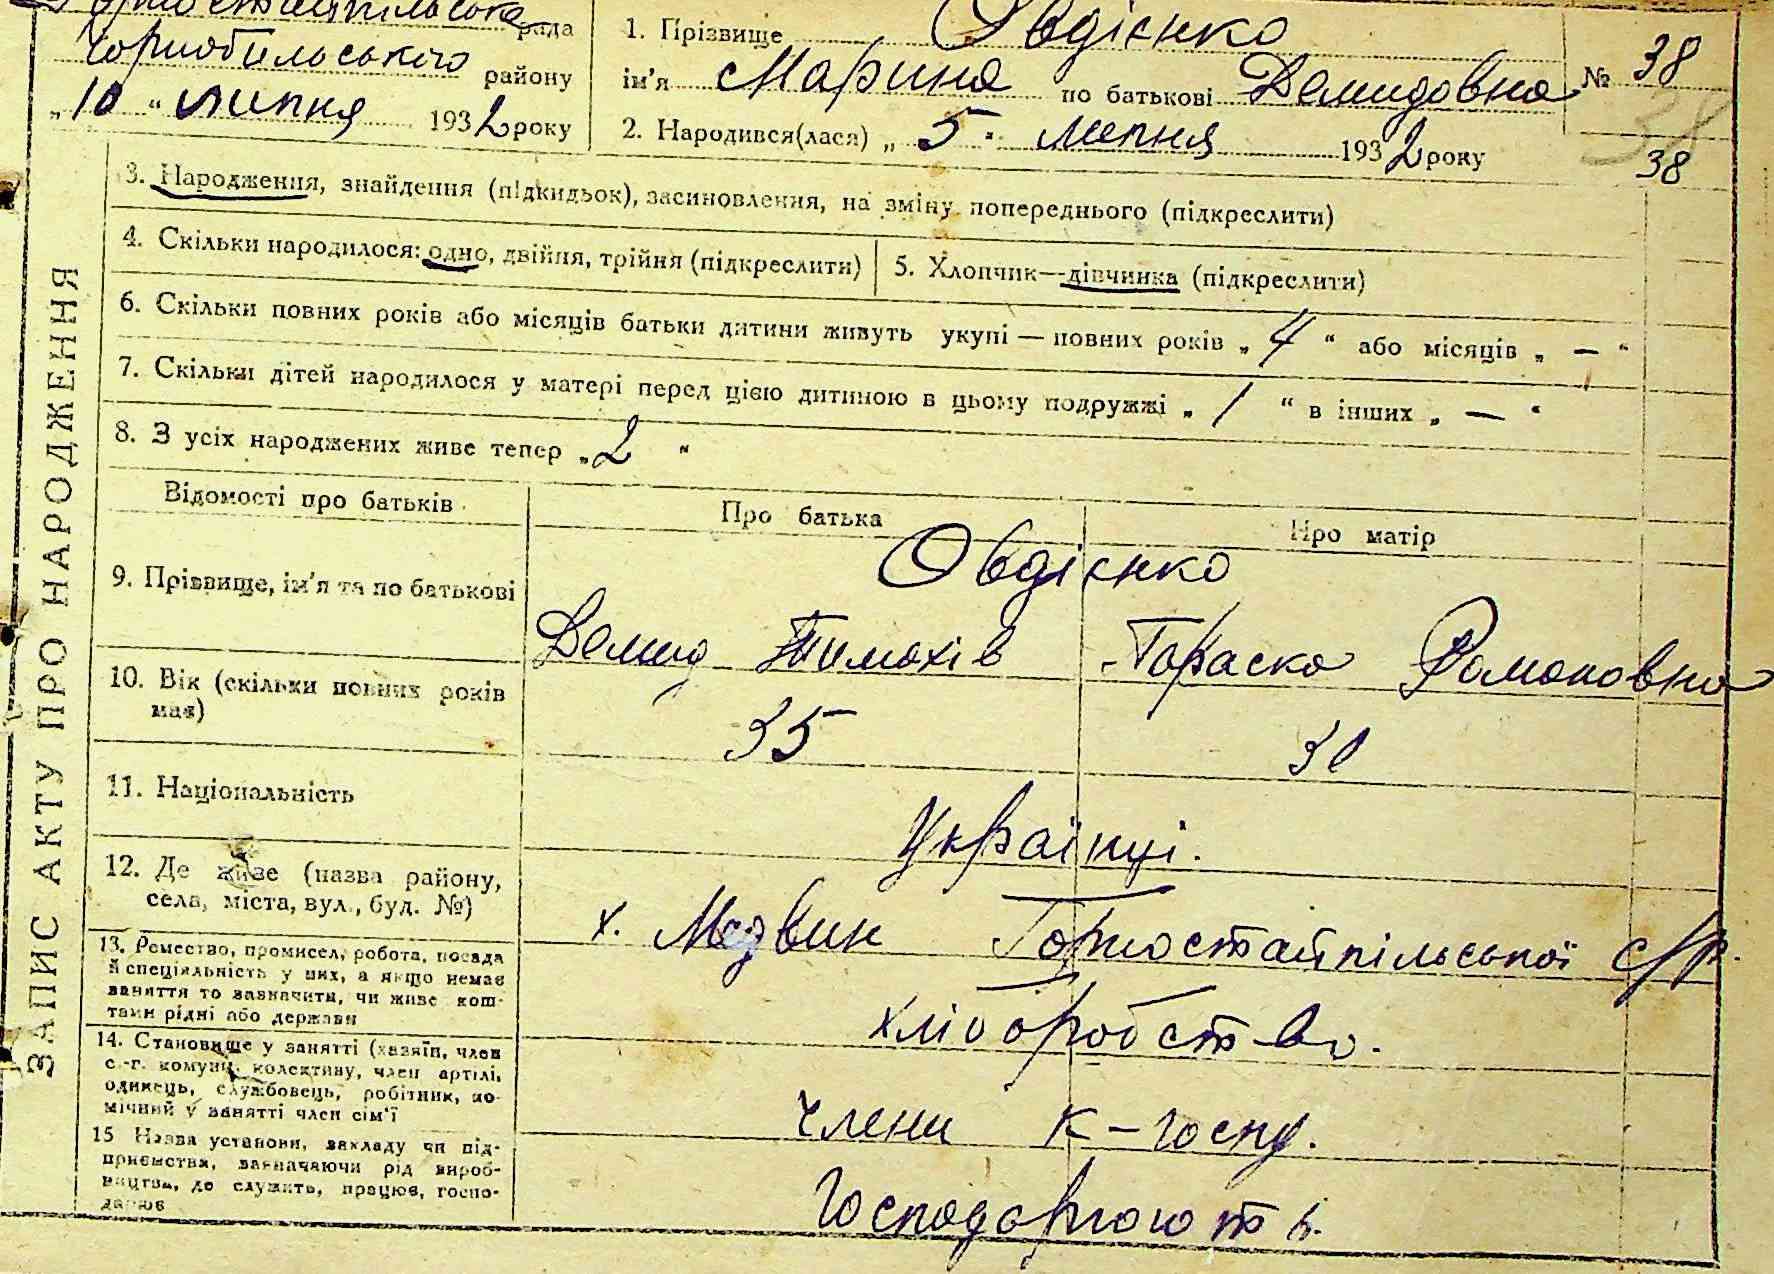 Горностайпільська рада
Чорнобильського району
„10“ липня 1932 року
1. Прізвище Овдієнко
ім'я Марина по батькові Демидовна
2. Народився(лася) „5“ липня 1932 року
№ 38
38
38
ЗАПИС АКТУ ПРО НАРОДЖЕННЯ
3. Народження, знайдення (підкидьок), засиновлення, на зміну попереднього (підкреслити)
4. Скільки народилося: одно, двійня, трійня (підкреслити)
5. Хлопчик—дівчинка (підкреслити)
6. Скільки повних років або місяців батьки дитини живуть укупі — повних років „4“ або місяців „—“
7. Скільки дітей народилося у матері перед цією дитиною в цьому подружжі „1“ в інших „—“
8. З усіх народжених живе тепер „2“
Відомості про батьків
Про батька
Про матір
9. Прізвище, ім'я та по батькові
Овдієнко
Демид Тимохів
Параска Романовна
10. Вік (скільки повних років
має)
35
31
11. Національність
Українці.
12. Де живе (назва району,
села, міста, вул., буд. №)
х. Медвин Горностайпільської с/р.
13. Ремество, промисел, робота, посада
й спеціяльність у них, а якщо немає
заняття то зазначити, чи живе кош-
тами рідні або держави
хліборобство.
14. Становище у занятті (хазяїн, член
с.-г. комуни, колективу, член артілі,
одинець, службовець, робітник, по-
мічний у занятті член сім'ї
члени к-госпу.
15 Назва установи, закладу чи під-
приємства, зазначаючи рід вироб-
ництва, де служить, працює, госпо-
дарює
Господарюють.